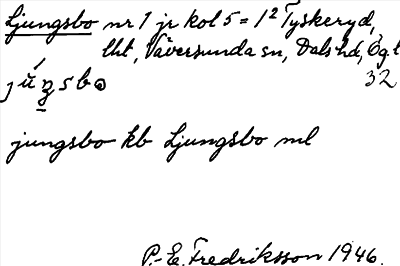 Ljungsbo nr 1 jr kol 5 = 1² Tyskeryd,
lht, Väversunda sn, Dals hd, Ögl
32
jungsbo kb Ljungsbo ml
P.-E. Fredriksson 1946.